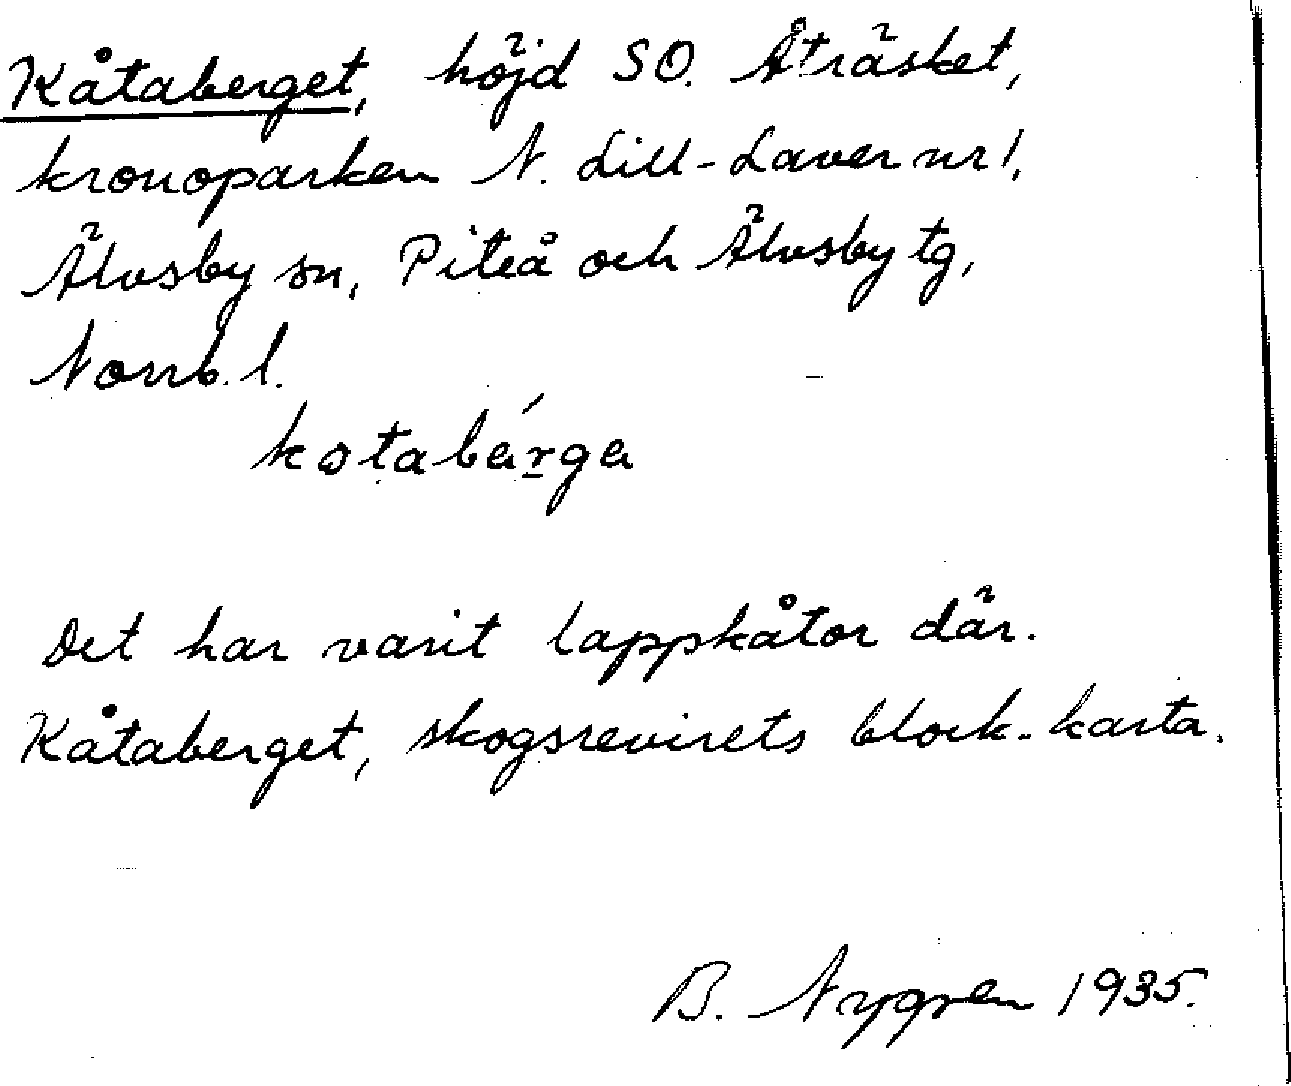 Kåtaberget, höjd SO. Åträsket,
kronoparken N. Lill-Laver nr 1,
Älvsby sn, Piteå och Älvsby tg,
Norrb. l.
kɷtabérga
Det har varit lappkåtor där.
Kåtaberget, skogsrevirets block-karta.
B. Nygren 1935.